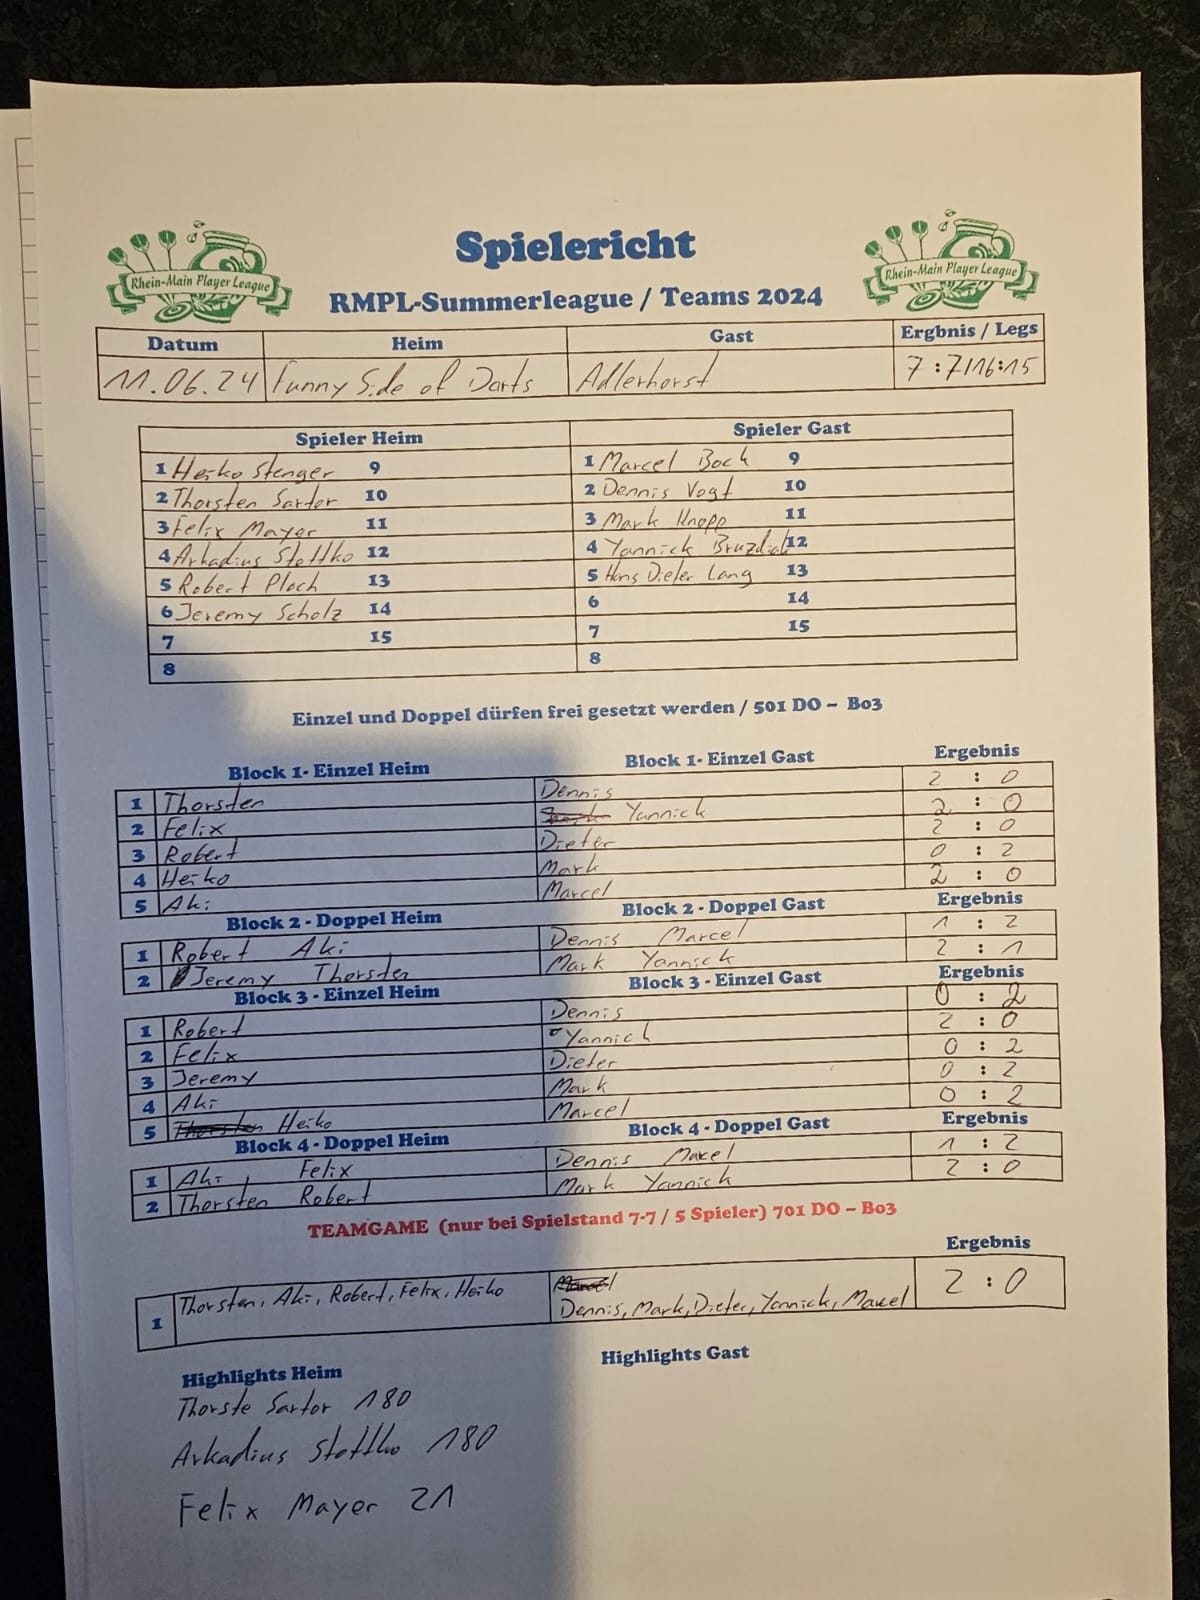 Rhein-Main Player League
Spielericht
Rhein-Main Player League
RMPL-Summerleague / Teams 2024
Datum Heim Gast Ergbnis / Legs
11.06.24 Funny Side of Darts Adlerhorst 7:7/16:15
Spieler Heim Spieler Gast
1 Heiko Stenger 9 1 Marcel Bock 9
2 Thorsten Sartor 10 2 Dennis Vogt 10
3 Felix Mayer 11 3 Mark Knopp 11
4 Arkadius Stottko 12 4 Yannick 12
5 Robert Ploch 13 5 Hans Dieter Lang 13
6 Jeremy Scholz 14 6 14
7 15 7 15
8 8
Einzel und Doppel dürfen frei gesetzt werden / 501 DO – Bo3
Block 1- Einzel Heim Block 1- Einzel Gast Ergebnis
1 Thorsten Dennis 2 : 0
2 Felix Yannick 2 : 0
3 Robert Dieter 2 : 0
4 Heiko Mark 0 : 2
5 Aki Marcel 2 : 0
Block 2 - Doppel Heim Block 2 - Doppel Gast Ergebnis
1 Robert Aki Dennis Marcel 1 : 2
2 Jeremy Thorsten Mark Yannick 2 : 1
Block 3 - Einzel Heim Block 3 - Einzel Gast Ergebnis
1 Robert Dennis 0 : 2
2 Felix Yannick 2 : 0
3 Jeremy Dieter 0 : 2
4 Aki Mark 0 : 2
5 Thorsten Heiko Marcel 0 : 2
Block 4 - Doppel Heim Block 4 - Doppel Gast Ergebnis
1 Aki Felix Dennis Macel 1 : 2
2 Thorsten Robert Mark Yannick 2 : 0
TEAMGAME (nur bei Spielstand 7-7 / 5 Spieler) 701 DO – Bo3
Ergebnis
1 Thorsten, Aki, Robert, Felix, Heiko Marcel
Dennis, Mark, Dieter, Yannick, Macel 2 : 0
Highlights Heim Highlights Gast
Thorste Sartor 180
Arkadius Stottko 180
Felix Mayer 21